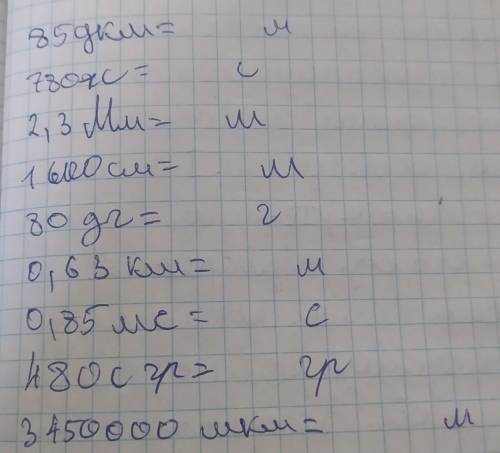 85дкм= м
780лс= с
2,3 Мм= м
1600см= м
80 дг= г
0,63 км= м
0,85 мс= с
480с гр= гр
3450000 мкм= м